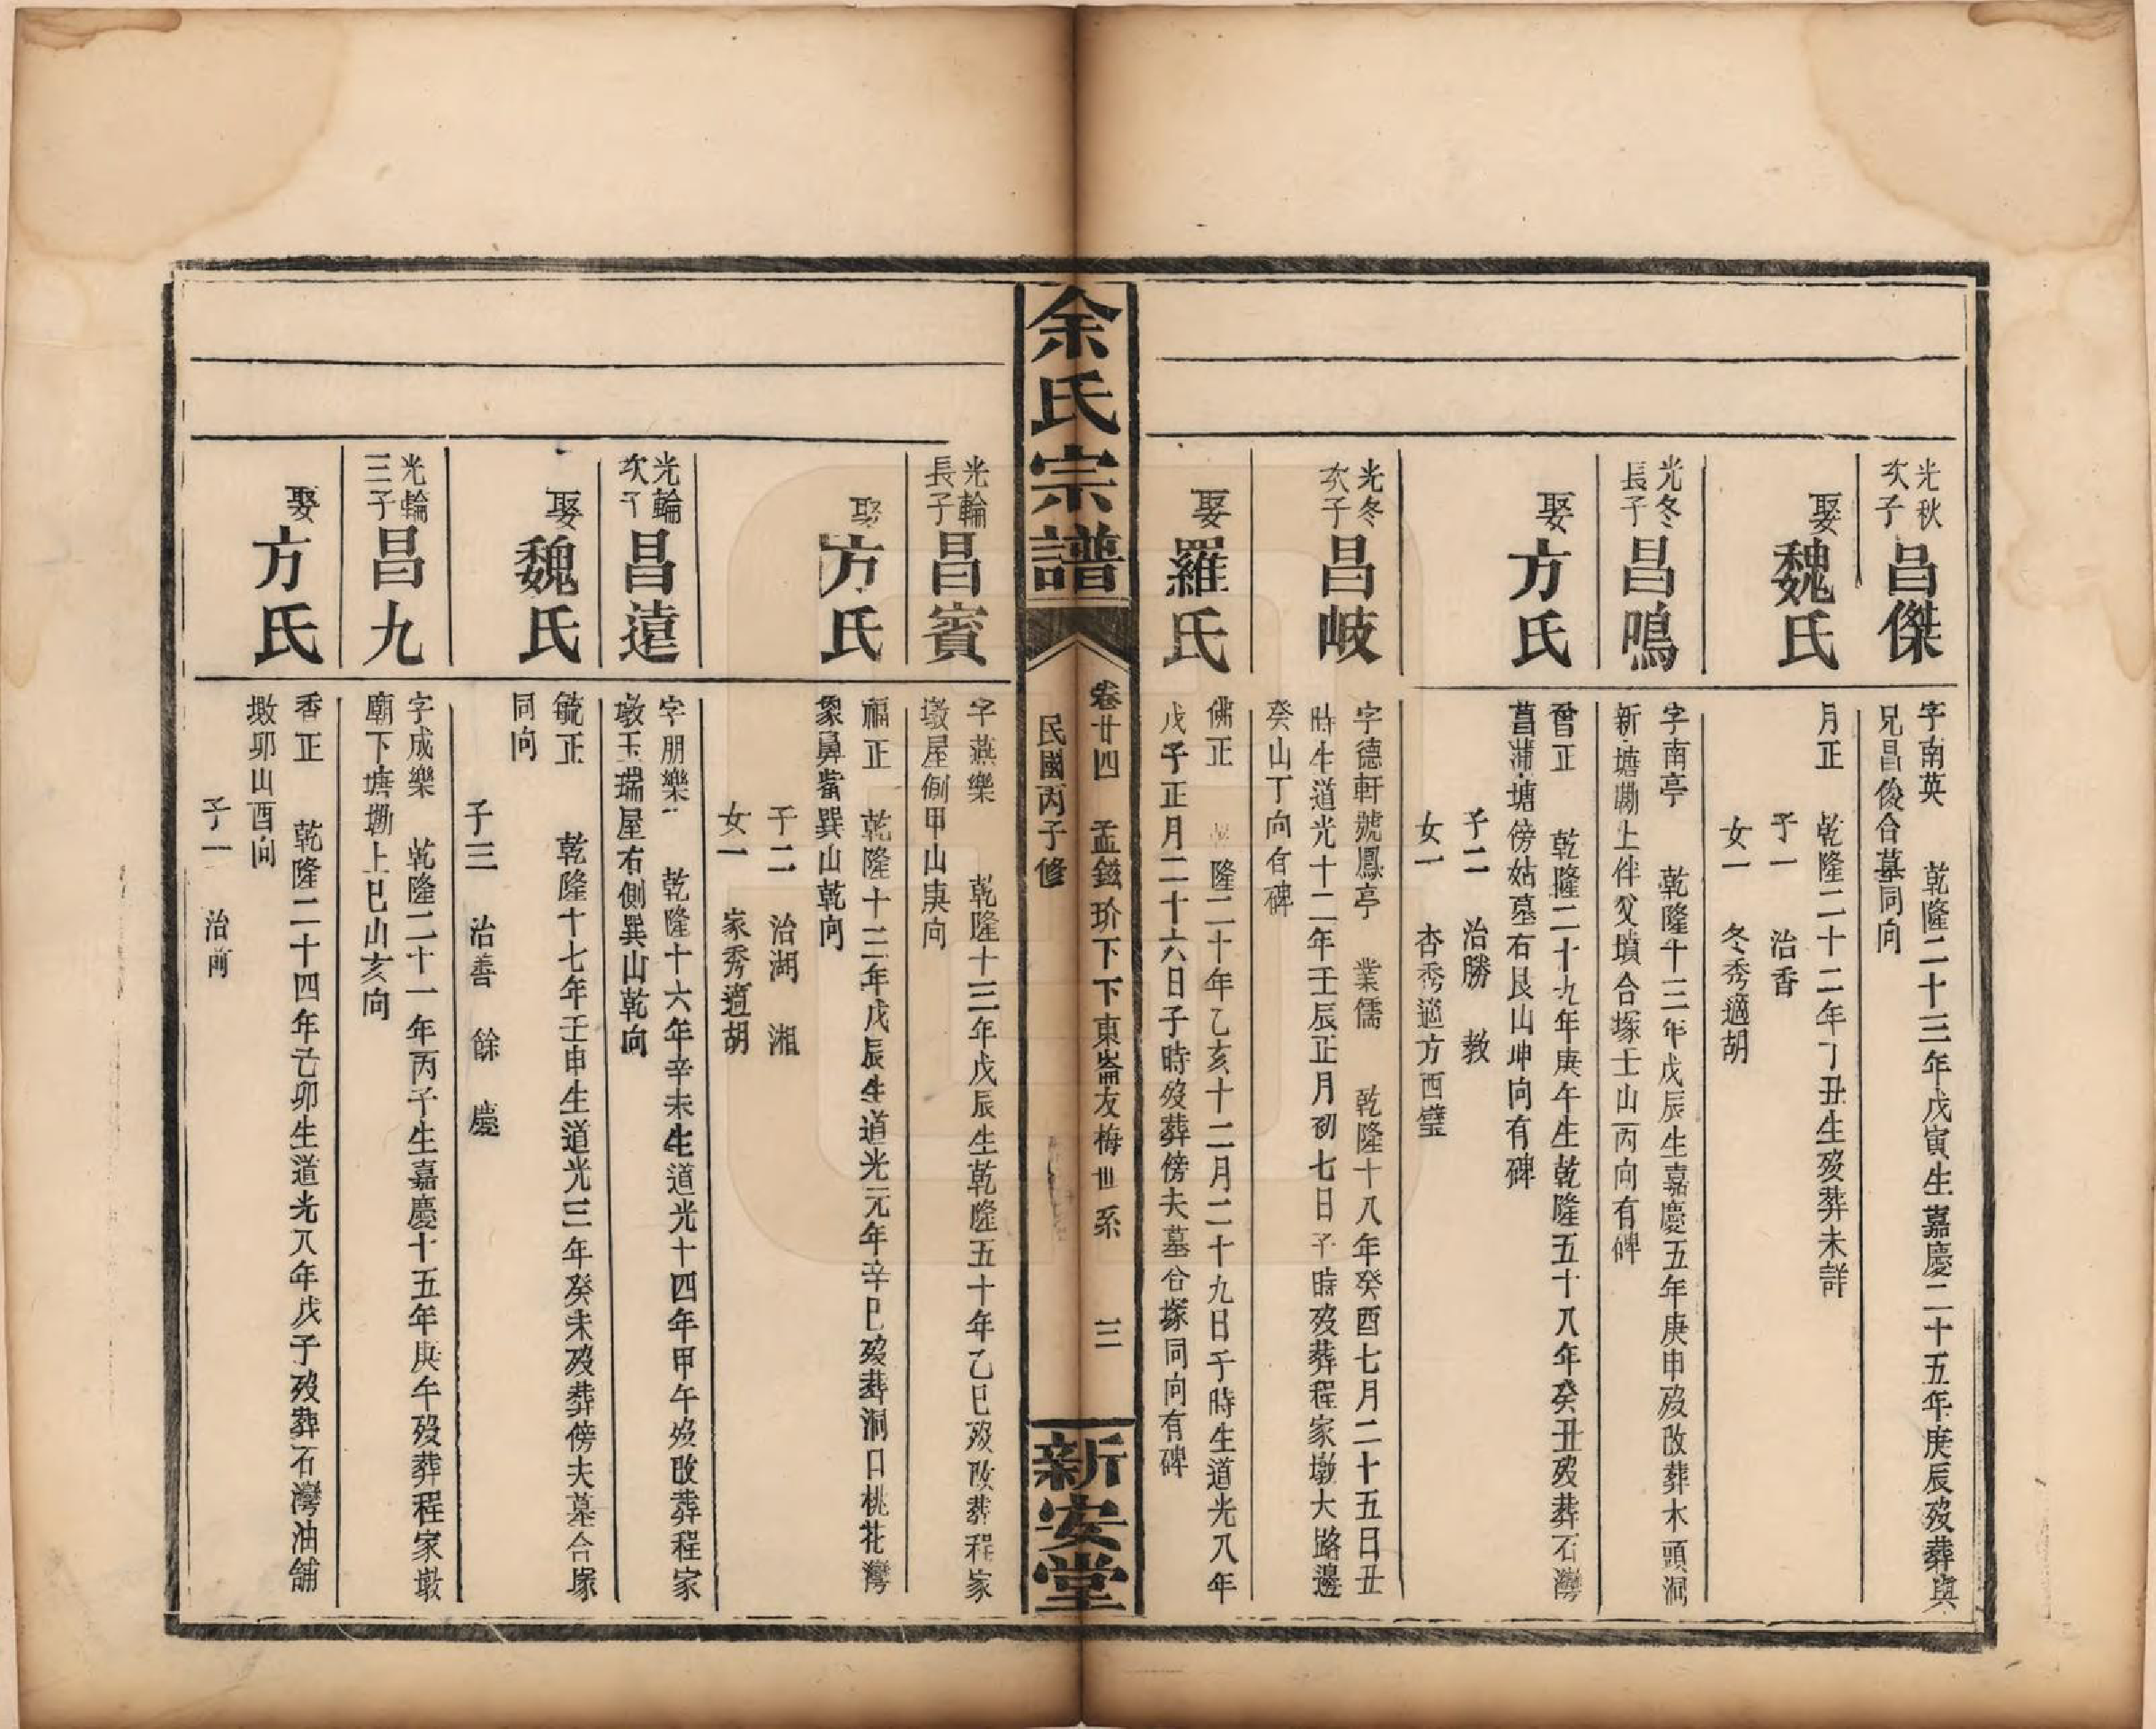 光秋
次子
昌傑
字南英 乾隆二十三年戊寅生嘉慶二十五年庚辰歿葬與
兄昌俊合墓同向
娶魏氏
月正 乾隆二十二年丁丑生歿葬未詳
子一 治香
女一 冬秀適胡
光冬
長子
昌鳴
字南亭 乾隆十三年戊辰生嘉慶五年庚申歿改葬木頭洞
新塘塝上伴父墳合塚壬山丙向有碑
娶方氏
曾正 乾隆二十九年庚午生乾隆五十八年癸丑歿葬石灣
菖蒲塘傍姑墓右艮山坤向有碑
子二 治勝 教
女一 杏秀適方西璧
光冬
次子
昌岐
字德軒號鳳亭 業儒 乾隆十八年癸酉七月二十五日丑
時生道光十二年壬辰正月初七日子時歿葬程家墩大路邊
癸山丁向有碑
娶羅氏
佛正 隆二十年乙亥十二月二十九日子時生道光八年
戊子正月二十六日子時歿葬傍夫墓合塚同向有碑
余氏宗譜
卷廿四 孟鎡玠下下東崙友梅世系 三
民國丙子修
新安堂
光輪
長子
昌賓
字燕樂 乾隆十三年戊辰生乾隆五十年乙巳歿改葬程家
墩屋側甲山庚向
娶方氏
福正 乾隆十三年戊辰生道光元年辛巳歿葬洞口桃花灣
象鼻嘴巽山乾向
子二 治湖 湘
女一 家秀適胡
光輪
次子
昌遠
字朋樂 乾隆十六年辛未生道光十四年甲午歿改葬程家
墩玉瑞屋右側巽山乾向
娶魏氏
毓正 乾隆十七年壬申生道光三年癸未歿葬傍夫墓合塚
同向
子三 治善 餘 慶
光輪
三子
昌九
字成樂 乾隆二十一年丙子生嘉慶十五年庚午歿葬程家墩
廟下塘塝上巳山亥向
娶方氏
香正 乾隆二十四年己卯生道光八年戊子歿葬石灣油舖
墩卯山酉向
子一 治